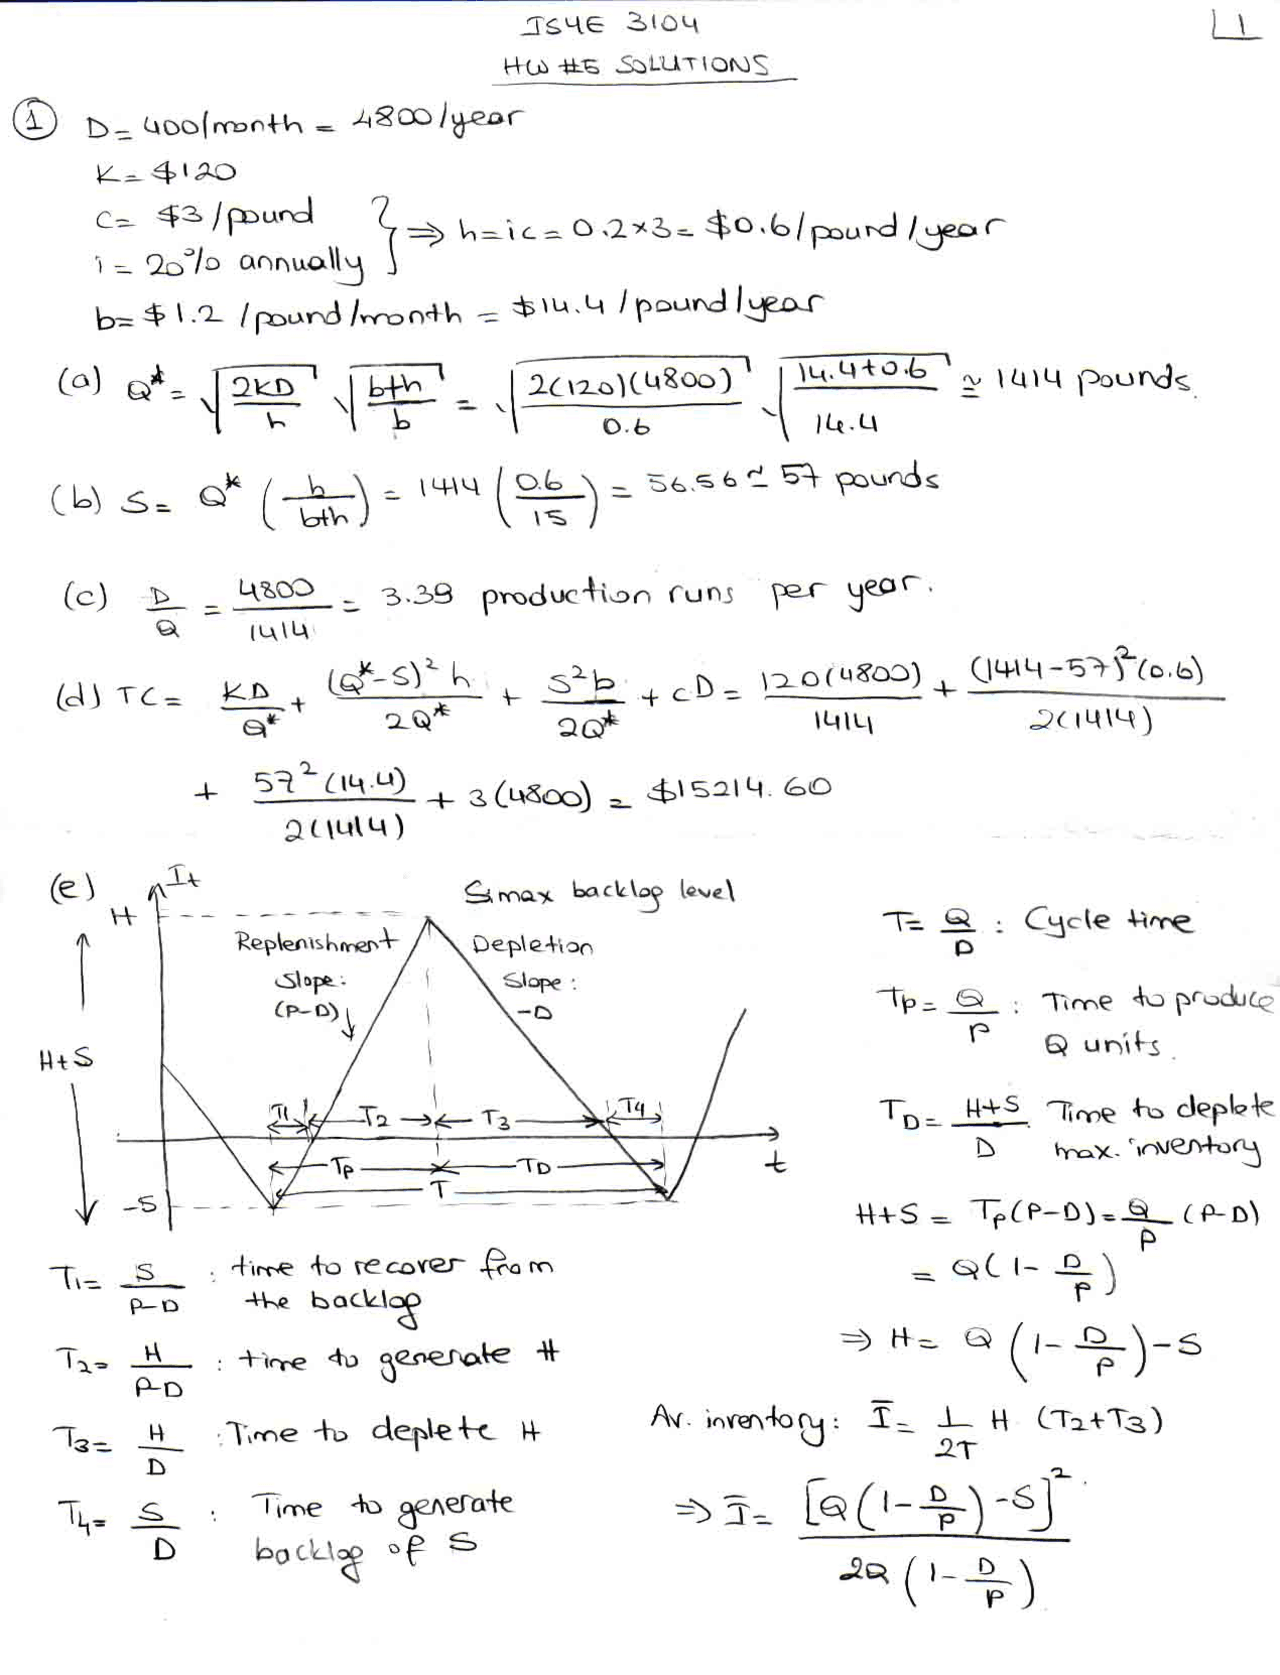 ISYE 3104
L1
HW #5 SOLUTIONS
① D = 400/month = 4800/year
K = $120
C = $3/pound
i = 20% annually } ⇒ h = ic = 0.2×3 = $0.6/pound/year
b = $1.2/pound/month = $14.4/pound/year
(a) Q* = √(2KD/h) √((b+h)/b) = √(2(120)(4800)/0.6) √((14.4+0.6)/14.4) ≃ 1414 pounds.
(b) S = Q* (h/(b+h)) = 1414 (0.6/15) = 56.56 ≃ 57 pounds
(c) D/Q = 4800/1414 = 3.39 production runs per year.
(d) TC = KD/Q* + (Q*-S)² h/2Q* + S²b/2Q* + cD = 120(4800)/1414 + (1414-57)²(0.6)/2(1414)
+ 57²(14.4)/2(1414) + 3(4800) = $15214.60
(e) It
S: max backlog level
H
Replenishment Slope: (P-D)
Depletion Slope: -D
H+S
T1 T2 T3 T4
t
Tp TD
T
-S
T = Q/D : Cycle time
Tp = Q/P : Time to produce
Q units.
TD = (H+S)/D : Time to deplete
max. inventory
H+S = Tp(P-D) = Q/P (P-D)
= Q(1 - D/P)
⇒ H = Q(1 - D/P) - S
T1 = S/(P-D) : time to recover from
the backlog
T2 = H/(P-D) : time to generate H
T3 = H/D : Time to deplete H
T4 = S/D : Time to generate
backlog of S
Av. inventory: Ī = 1/2T H (T2+T3)
⇒ Ī = [Q(1 - D/P) - S]² / 2Q(1 - D/P)